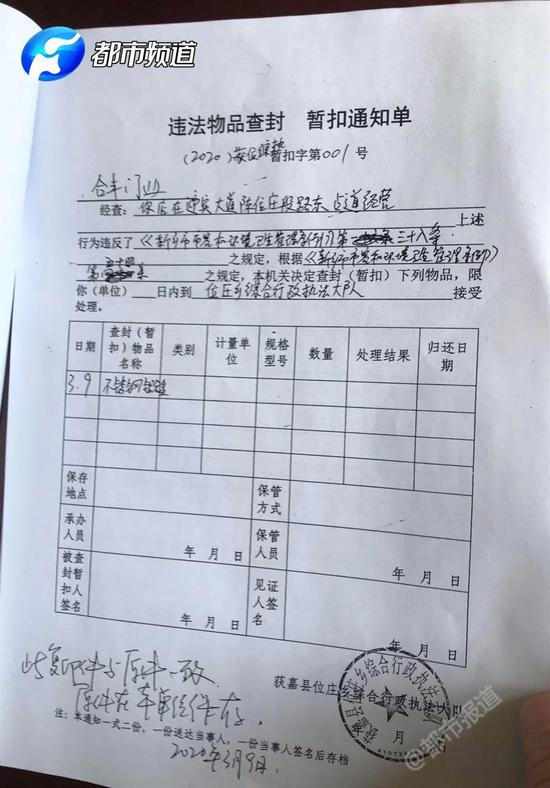 都市频道
违法物品查封 暂扣通知单
(2020) 获位综执暂扣字第001号
合丰门业
经查：你店在迎宾大道陈位庄段路东占道经营 上述
行为违反了《新乡市市容和环境卫生管理条例》第三十八条
之规定，根据《新乡市市容和环境卫生管理条例》
第五十四条 之规定，本机关决定查封（暂扣）下列物品，限
你（单位） 日内到 位庄乡综合行政执法大队 接受
处理。
日期 查封（暂扣）物品名称 类别 计量单位 规格型号 数量 处理结果 归还日期
3.9 不锈钢
保存地点 保管方式
承办人员 年 月 日 保管人员 年 月 日
被查封暂扣人签名 年 月 日 见证人签名 年 月 日
此复印件与原件一致
原件在 存.
获嘉县位庄乡综合行政执法大队
年 月 日
注：本通知一式二份，一份送达当事人，一份当事人签名后存档
2020年3月9日.
获嘉县位庄乡综合行政执法大队
@都市报道